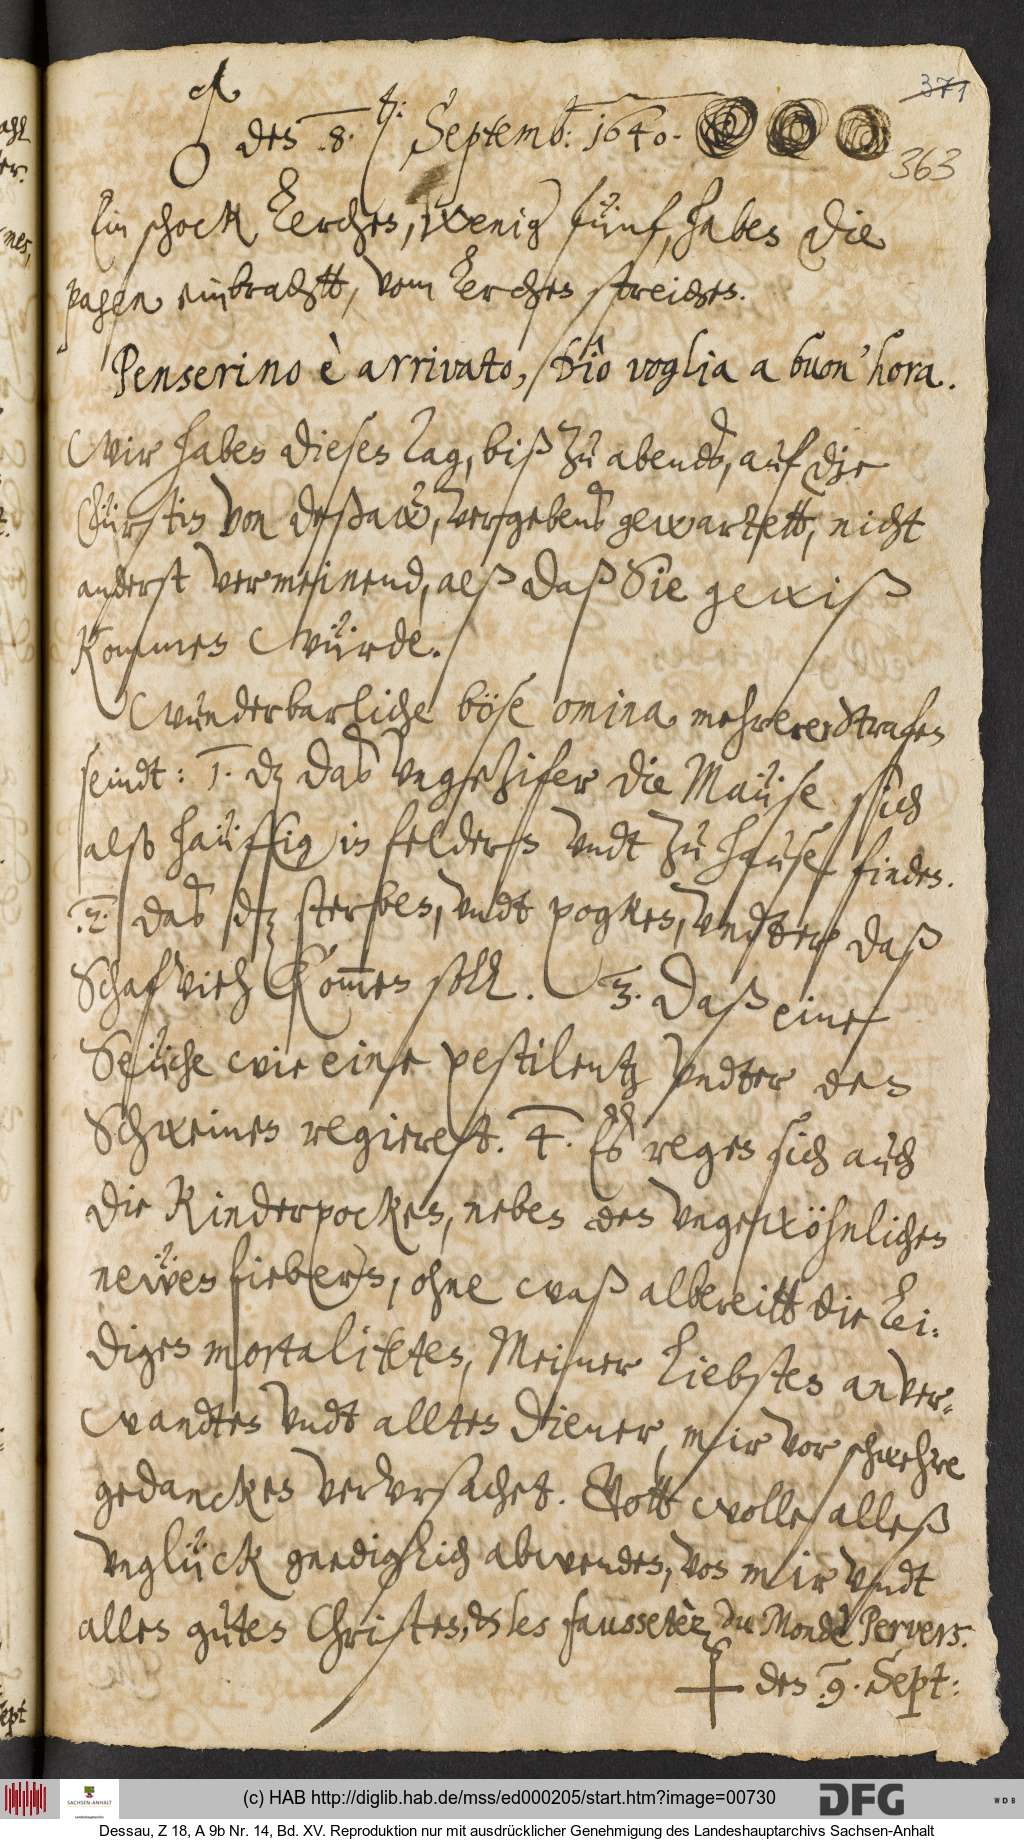 371
363
♂ den 8. t: Septemb: 1640.
Ein schock Lerchen, wenig fünf, haben die
pagen einbrachtt, vom Lerchen streichen.
Penserino è arrivato, Dio voglia a buon' hora.
Wir haben diesen Tag, biß zu abends, auf die
Fürstin von Deßaw, vergebens gewartett, nicht
anderst vermeinend, alß daß Sie gewiß
kommen würde.
Wunderbarliche böse omina mehrerer Strafen
seindt: 1. dz das Vngeziefer die Mäuse sich
also häuffig in feldern vndt zu hause finden.
2. das dz sterben, vndt pogken, vndter daß
Schafvieh kom̅en soll. 3. Daß eine
Seuche wie eine pestilentz vndter den
Schweinen regieret. 4. Es regen sich auch
die Kinderpocken, neben den vngewöhnlichen
newen fiebern, ohne waß albereitt die Lei-
digen mortaliteten, Meiner Liebsten anver-
wandten vndt allten Diener, mir vor schwehre
gedancken vervrsachet. Gott wolle alleß
vnglück gnediglich abwenden, von mir vndt
allen guten Christen, & les faussetèz du Monde Pervers.
den 9. Sept:
Sept
(c) HAB http://diglib.hab.de/mss/ed000205/start.htm?image=00730
SACHSEN-ANHALT
DFG
WDB
Dessau, Z 18, A 9b Nr. 14, Bd. XV. Reproduktion nur mit ausdrücklicher Genehmigung des Landeshauptarchivs Sachsen-Anhalt